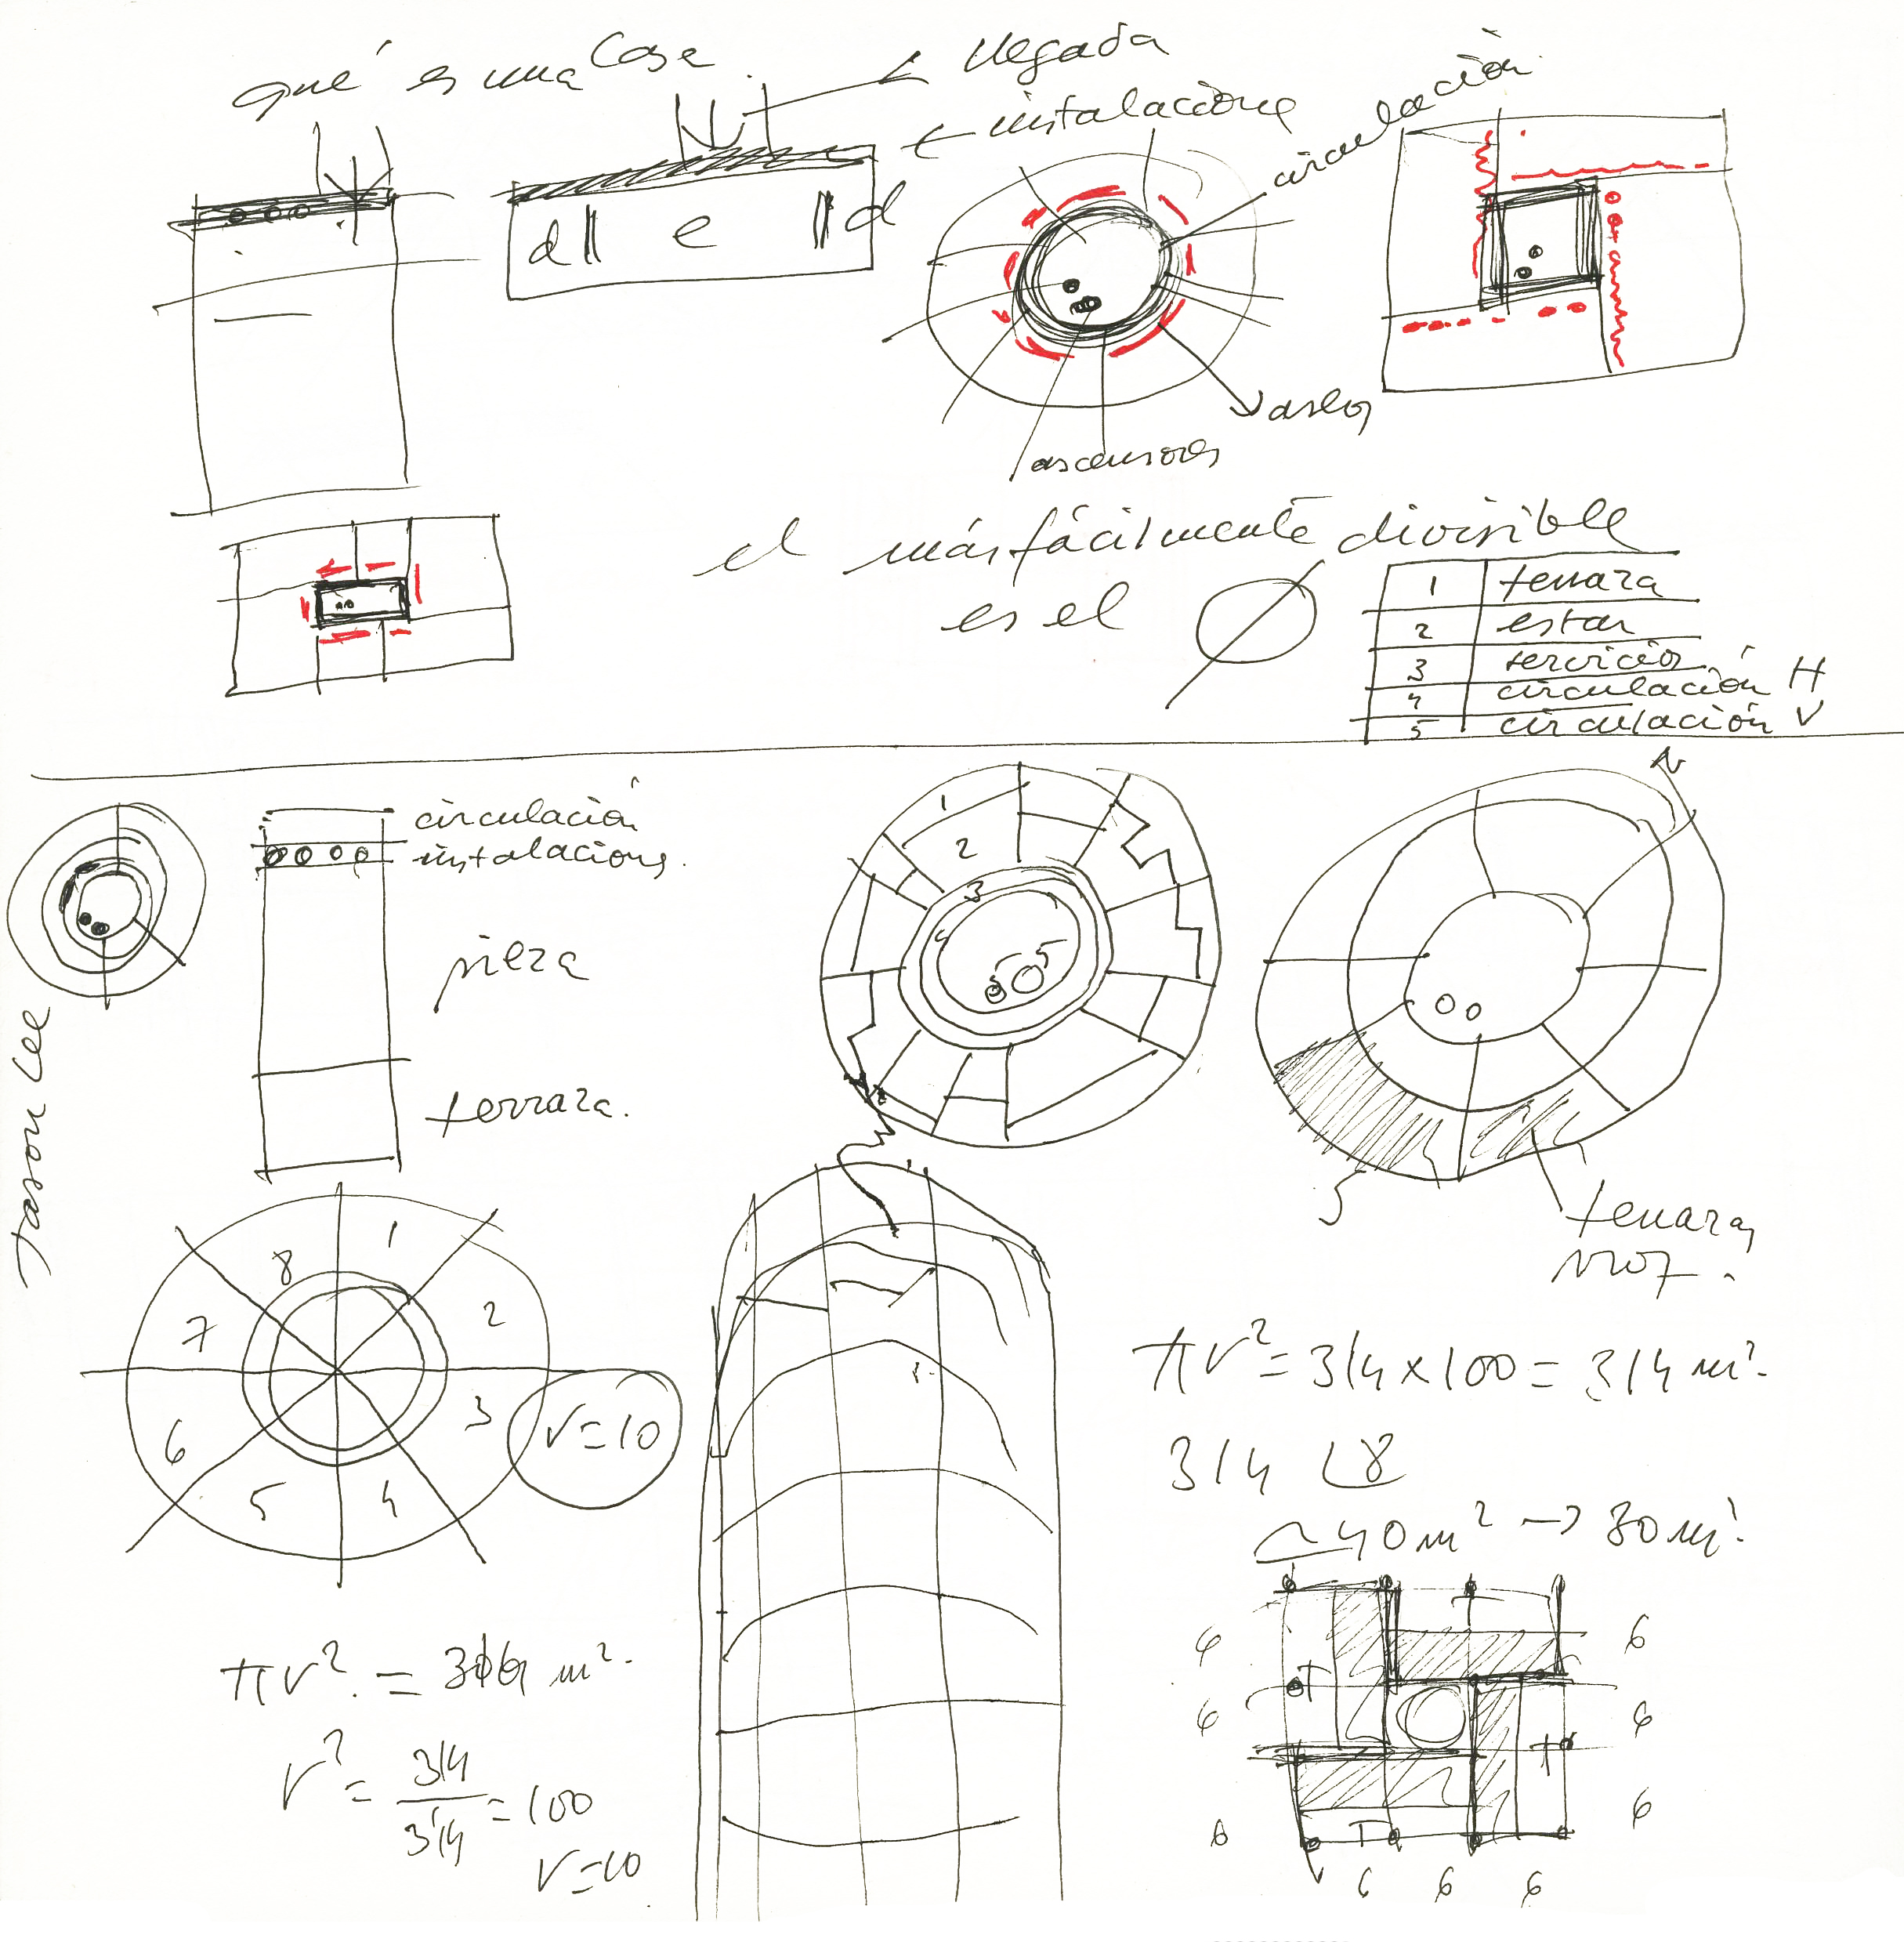 qué es una Casa
llegada
instalaciones
circulación
d e d
aseos
ascensores
el más fácilmente divisible
es el Ø
1 terraza
2 estar
3 servicios
4 circulación H
5 circulación V
circulación
instalaciones
pieza
terraza.
Jason Lee
1
2
3
4
5
5
N
terraza
1 2 3 4 5 6 7 8
r=10
πr² = 3'14 x 100 = 314 m²
314 8
~40 m² → 30 m²
πr² = 314 m²
r² = 314 / 3'14 = 100
r=10
6 6 6
6 6 6
6 6 6
T T T